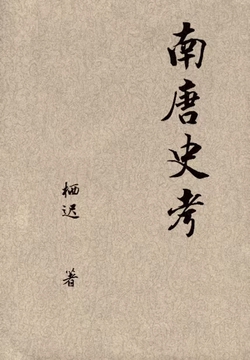 南唐史考
栖迟 著